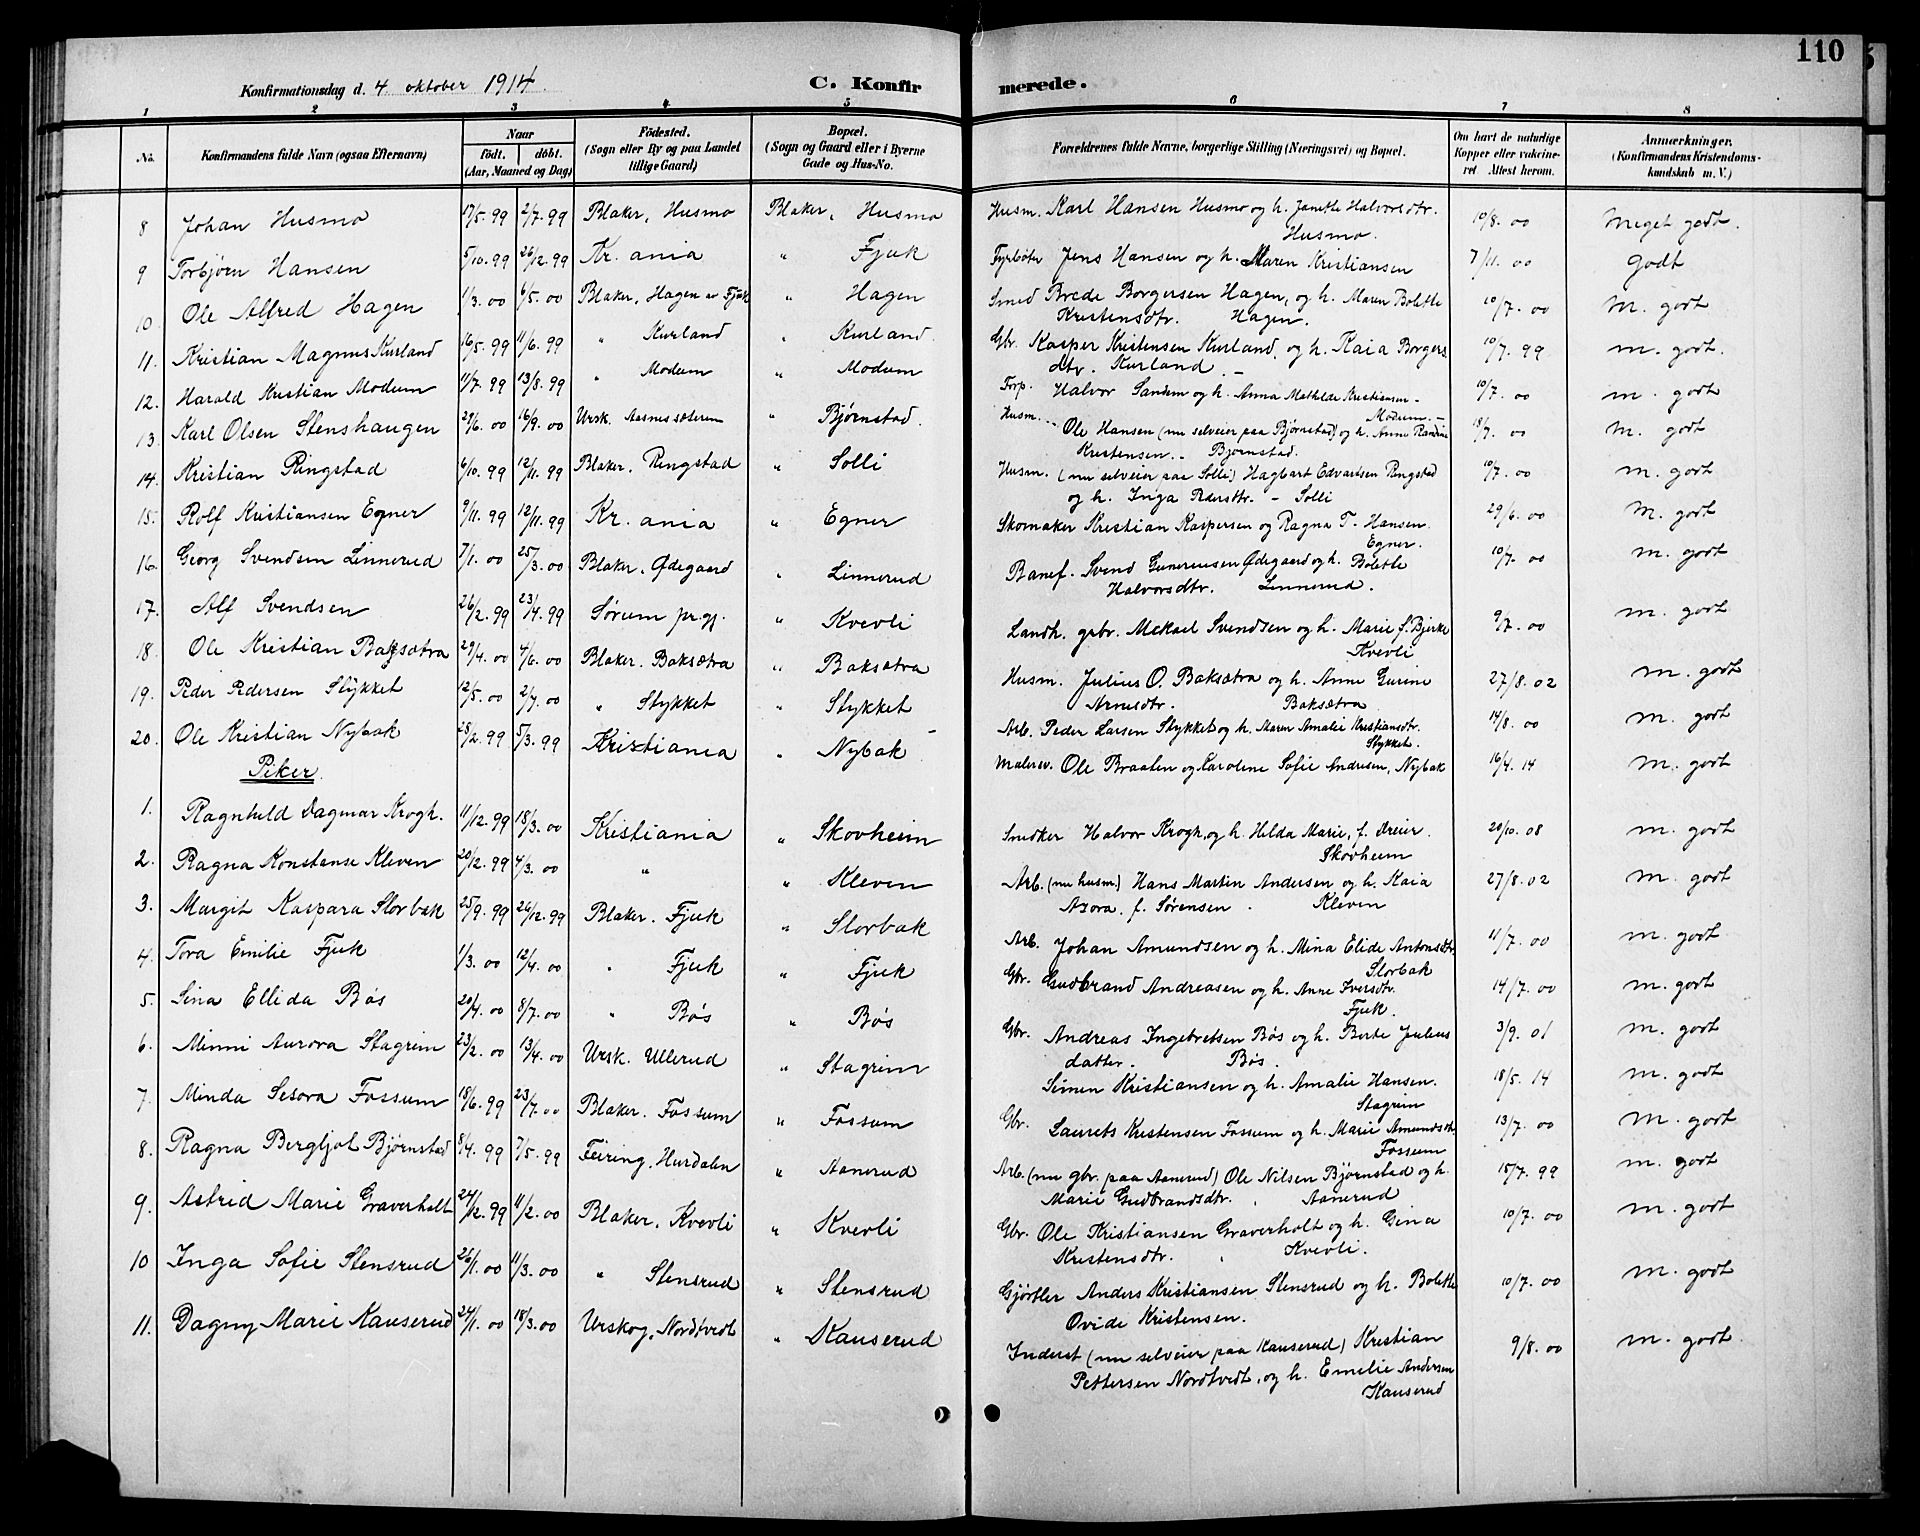 110
Konfirmationsdag d. 4 oktober 1914. C. Konfirmerede.
1 2 3 4 5 6 7 8
No. Konfirmandens fulde Navn (ogsaa Efternavn) Naar født. døbt. (Aar, Maaned og Dag) Fødested. (Sogn eller By og paa Landet tillige Gaard) Bopæl. (Sogn og Gaard eller i Byerne Gade og Hus-No. Forældrenes fulde Navne, borgerlige Stilling (Næringsvei) og Bopæl. Om havt de naturlige Kopper eller vakcineret Attest herom. Anmærkninger. (Konfirmandens Kristendomskundskab m. V.)
8 Johan Husmo 17/5. 99 2/7. 99 Blaker, Husmo Blaker, Husmo Husm. Karl Hansen Husmo og h. Janette Halvorsdtr. 10/8. 00 Meget godt.
Husmo.
9 Torbjørn Hansen 5/10. 99 26/12. 99 Kr. ania " Fjuk Fyrbøter Jens Hansen og h. Maren Kristiansen 7/11. 00 Godt
10. Ole Alfred Hagen 1/3. 00 6/5. 00 Blaker, Hagen u. Fjuk " Hagen Smed Brede Borgersen Hagen, og h. Maren Bolette 10/7. 00 M. godt
Kristensdtr. Hagen.
11. Kristian Magnus Kurland 16/5. 99 11/6. 99 " Kurland " Kurland. Gbr. Kasper Kristensen Kurland, og h. Kaia Borgers 10/7. 99 m. godt.
dtr. Kurland. -
12. Harald Kristian Modum 11/7. 99 13/8. 99 " Modum " Modum Forp. Halvor Sandem og h. Anna Mathilde Kristiansen - 10/7. 00 m. godt
Modum. -
13. Karl Olsen Stenshaugen 29/6. 00 16/9. 00 Ursk. Aasnessæteren " Bjørnstad. Husm. Ole Hansen (nu selveier paa Bjørnstad) og h. Anne Randine 18/7. 00 M. godt
Kristensen. - Bjørnstad.
14. Kristian Ringstad 6/10. 99 12/11. 99 Blaker, Ringstad " Solli Husm. (nu selveier paa Solli) Hagbart Edvartsen Ringstad 10/7. 00 m. godt
og h. Inga Pedersdtr. - Solli
15. Rolf Kristiansen Egner 9/11. 99 12/11. 99 Kr. ania " Egner Skomaker Kristian Kaspersen og Ragna T. Hansen. 29/6. 00 M. godt
Egner.
16. Georg Svendsen Linnerud 7/1. 00 25/3. 00 Blaker, Ødegaard " Linnerud Banef. Svend Gunerensen Ødegaard og h. Bolette 10/7. 00 m. godt
Halvorsdtr. Linnerud.
17. Alf Svendsen 26/2. 99 23/4. 99 Sørum pr.gj. " Kvevli Landh. gsbr. Mekael Svendsen og h. Marie f. Bjerke 9/7. 00 m. godt
Kvevli
18. Ole Kristian Baksætra 29/4. 00 4/6. 00 Blaker. Baksætra " Baksætra Husm. Julius O. Baksætra og h. Anne Gurine 27/8. 02 m. godt
Arnesdtr. Baksætra
19. Peder Pedersen Stykket 12/5. 00 2/7. 00 " Stykket " Stykket Arb. Peder Larsen Stykket og h. Maren Amalie Kristiansdtr. 14/8. 00 m. godt
Stykket.
20. Ole Kristian Nybak 28/2. 99 5/3. 99 Kristiania " Nybak Malersv. Ole Braaten og Karoline Sofie Andresen, Nybak 16/4. 14 m. godt
Piker.
1. Ragnhild Dagmar Krogh. 11/12. 99 18/3. 00 Kristiania " Skovheim Snidker Halvor Krogh, og h. Hilda Marie, f. Dreier. 20/10. 08 m. godt
Skovheim
2. Ragna Konstanse Kleven 20/12. 99 4/3. 00 " " Kleven Arb. (nu husm.) Hans Martin Andersen og h. Kaia 27/8. 02 m. godt
Azora. f. Sørensen. Kleven
3. Margit Kaspara Storbak 25/9. 99 26/12. 99 Blaker. Fjuk " Storbak Arb. Johan Amundsen og h. Mina Elide Antonsdtr. 11/7. 00 m. godt
Storbak
4. Tora Emilie Fjuk 1/3. 00 12/4. 00 " Fjuk " Fjuk Gbr. Gudbrand Andreasen og h. Anne Iversdtr. 14/7. 00 m. godt
Fjuk.
5. Sina Ellida Bøs 20/4. 00 8/7. 00 " Bøs " Bøs Gbr. Andreas Ingebretsen Bøs og h. Berte Julius 3/9. 01 m. godt
datter. Bøs.
6. Minni Aurora Stagrim 23/2. 00 13/4. 00 Ursk. Ullerud " Stagrim Simen Kristiansen og h. Amalie Hansen. 18/5. 14 m. godt
Stagrim
7. Minda Sesora Fossum 18/6. 99 23/7. 00 Blaker. Fossum " Fossum Gbr. Laurets Kristensen Fossum og h. Marie Amundsdtr. 13/7. 00 m. godt
Fossum
8. Ragna Bergljot Bjørnstad 8/4. 99 7/5. 99 Feiring, Hurdalen " Aanerud Arb. (nu gbr. paa Aanerud) Ole Nilsen Bjørnstad og h. 15/7. 99 m. godt
Marie Gudbrandsdtr. Aanerud
9. Astrid Marie Graverholt 24/12. 99 11/2. 00 Blaker, Kvevli " Kvevli Gbr. Ole Kristiansen Graverholt og h. Gina 10/7. 00 m. godt
Kristensdtr. Kvevli.
10 Inga Sofie Stensrud 26/1. 00 11/3. 00 " Stensrud " Stensrud Gjörtler Anders Kristiansen Stensrud og h. Bolette 10/7. 00 m. godt
Ovide Kristensen.
11. Dagny Marie Kauserud 24/1. 00 18/3. 00 Urskog, Nordtvedt " Kauserud Inderst (nu selveier paa Kauserud) Kristian 9/8. 00 m. godt.
Pettersen Nordtvedt, og h. Emelie Andersen
Kauserud